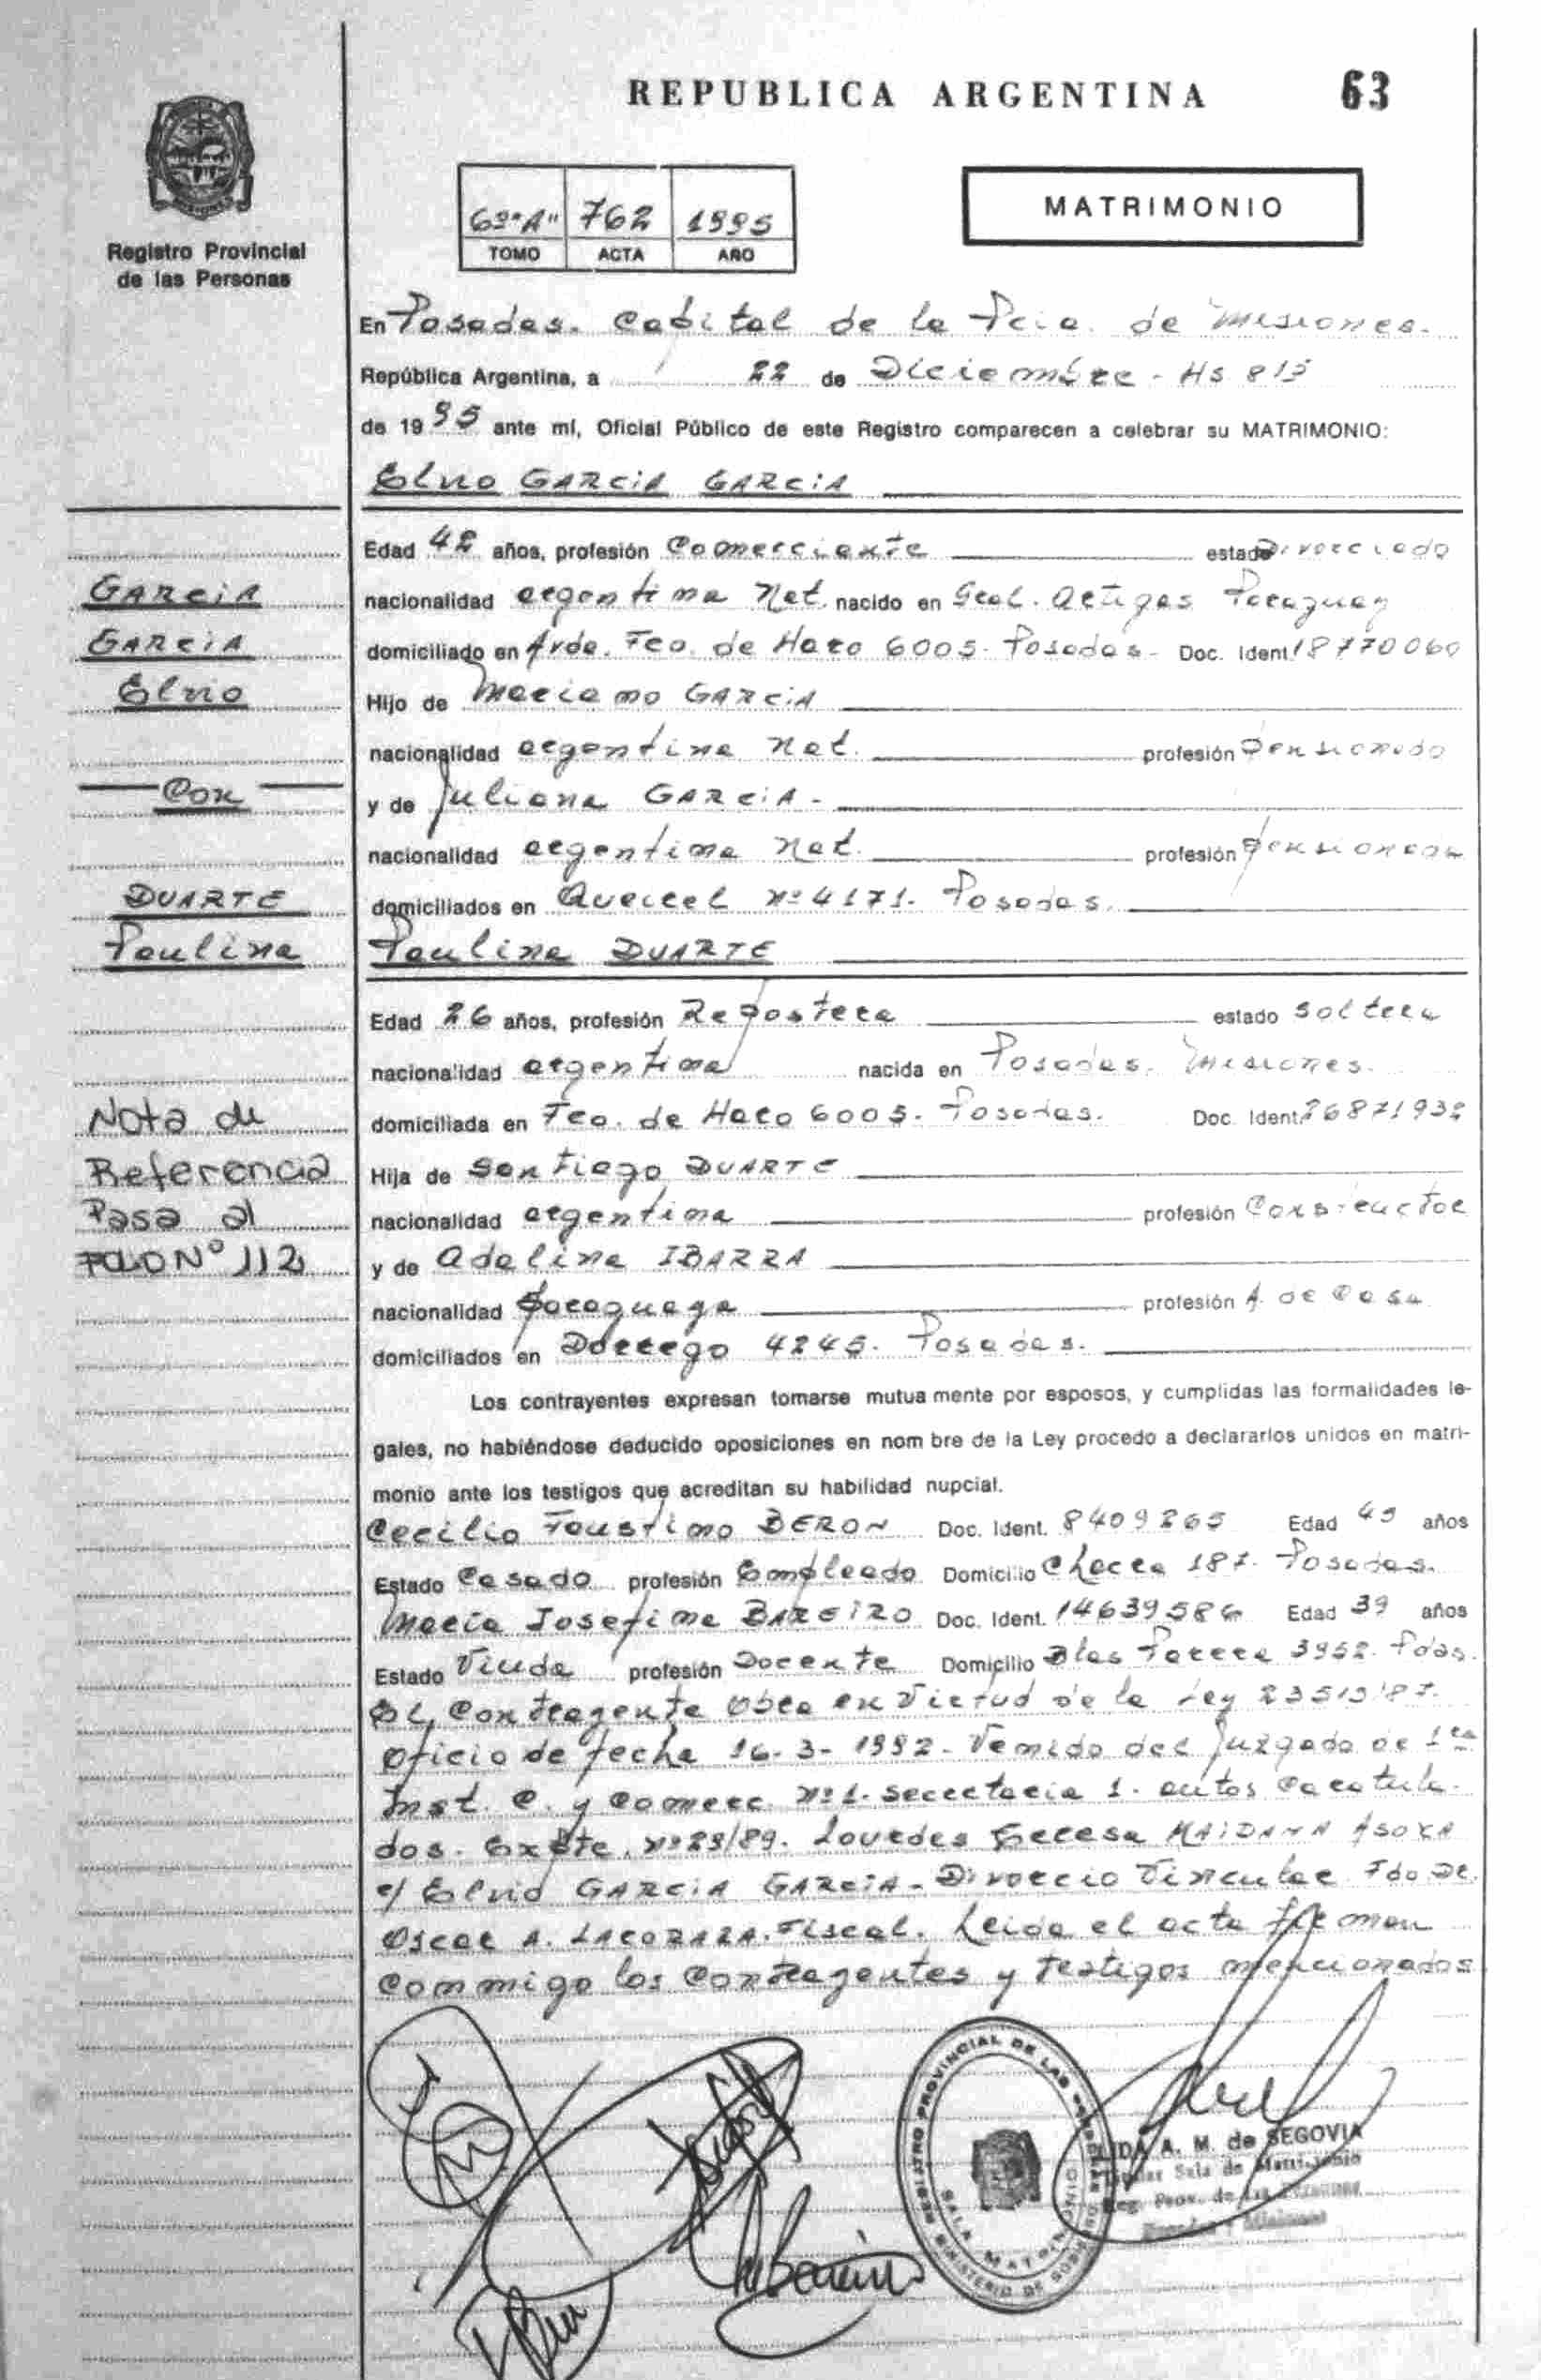 REPUBLICA ARGENTINA
63
Registro Provincial
de las Personas
6º "A" 762 1995
TOMO ACTA AÑO
MATRIMONIO
En Posadas. Capital de la Pcia. de Misiones.
República Argentina, a 22 de Diciembre - Hs 815
de 1995 ante mí, Oficial Público de este Registro comparecen a celebrar su MATRIMONIO:
Elvio GARCIA GARCIA
GARCIA
GARCIA
Elvio
Con
DUARTE
Paulina
Edad 42 años, profesión Comerciante estado Divorciado
nacionalidad argentina Nat. nacido en Gral. Artigas Paraguay
domiciliado en Avda. Fco. de Haro 6005- Posadas- Doc. Ident. 18770060
Hijo de Marciano GARCIA
nacionalidad argentina Nat. profesión Pensionado
y de Juliana GARCIA.-
nacionalidad argentina Nat. profesión
domiciliados en Nº 4171. Posadas.
Paulina DUARTE
Edad 26 años, profesión Repostera estado Soltera
nacionalidad argentina nacida en Posadas. Misiones.
domiciliada en Fco. de Haro 6005. Posadas. Doc. Ident.
Hija de Santiago DUARTE
nacionalidad argentina profesión Constructor
y de Adelina IBARRA
nacionalidad Paraguaya profesión A. de Casa
domiciliados en Dorrego 4245. Posadas.
Nota de
Referencia
Pasa al
FOLIO Nº 112
Los contrayentes expresan tomarse mutua mente por esposos, y cumplidas las formalidades le-
gales, no habiéndose deducido oposiciones en nom bre de la Ley procedo a declararlos unidos en matri-
monio ante los testigos que acreditan su habilidad nupcial.
Cecilio Faustino BERON Doc. Ident. 8409265 Edad 45 años
Estado Casado profesión Empleado Domicilio Chacra 187. Posadas.
Maria Josefina BAREIRO Doc. Ident. 14639586 Edad 39 años
Estado Viuda profesión Docente Domicilio Blas Parera 3952. Pdas.
El Contrayente Obra en Virtud de la Ley 23515/87.
Oficio de fecha 16-3-1992- Venido del Juzgado de 1ra
Inst. C. y Comerc. Nº 1. Secretaria 1. autos Caratula-
dos. Expte. Nº 29/89. Lourdes Teresa MAIDANA
c/ Elvio GARCIA GARCIA- Divorcio Vincular Fdo Dr.
Oscar A. Fiscal. Leida el acta firman
conmigo los Contrayentes y testigos mencionados
REGISTRO PROVINCIAL DE LAS PERSONAS
SALA MATRIMONIO
MINISTERIO DE GOBIERNO
A. M. de SEGOVIA
Sala de Matrimonio
Reg. Prov. de las Personas
Posadas Misiones